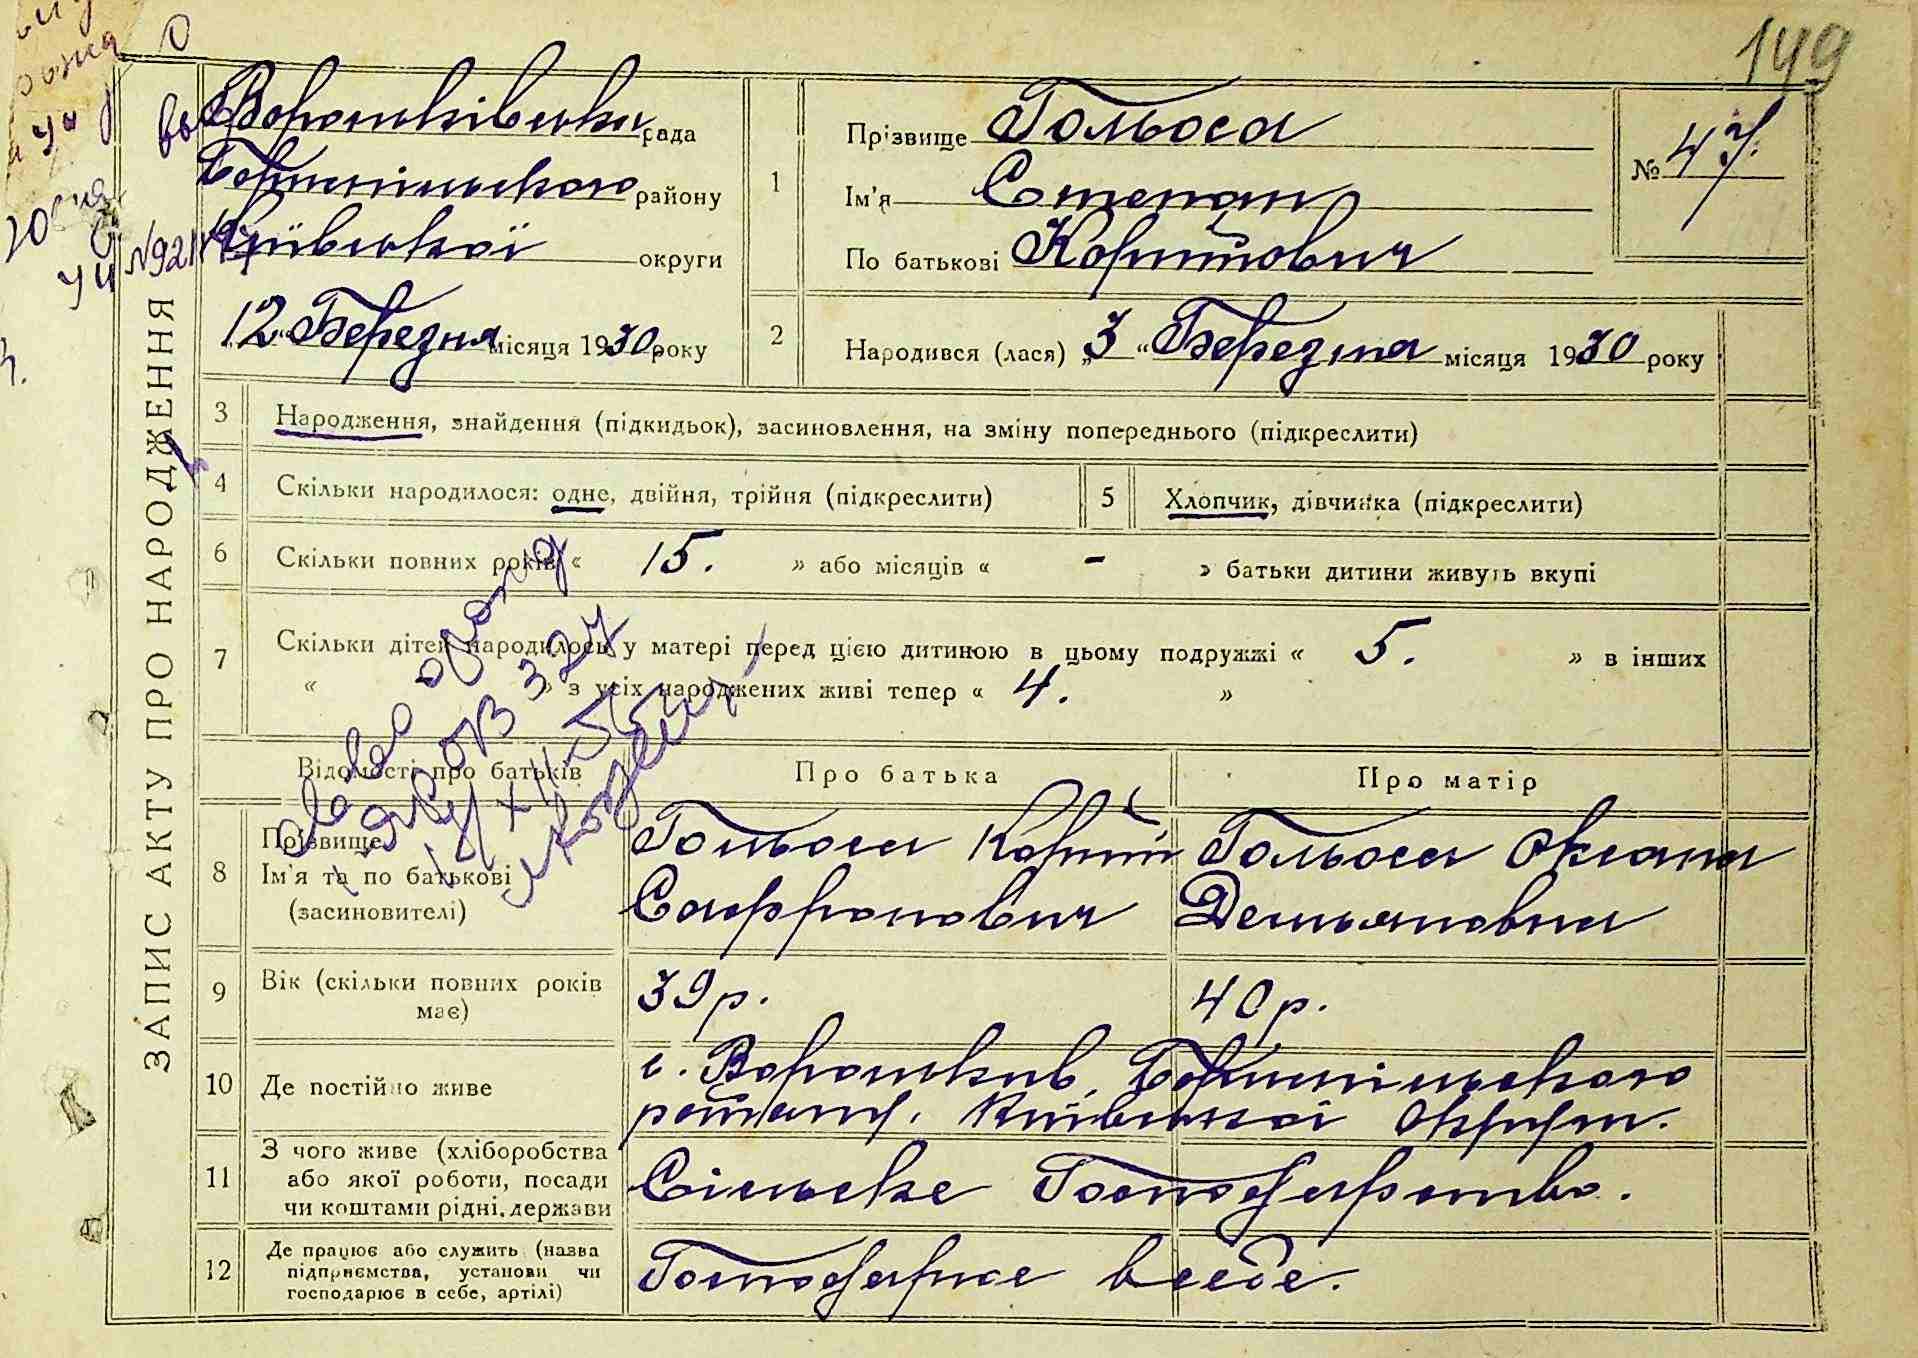 149
Вороньківська рада
Бориспільського району
Київської округи
"12" Березня місяця 1930 року
1
Прізвище Гольоса
Ім'я Степан
По батькові Корнійович
№ 47.
2
Народився (лася) „3“ Березня місяця 1930 року
ЗАПИС АКТУ ПРО НАРОДЖЕННЯ
3 Народження, знайдення (підкидьок), засиновлення, на зміну попереднього (підкреслити)
4 Скільки народилося: одне, двійня, трійня (підкреслити)
5 Хлопчик, дівчинка (підкреслити)
6 Скільки повних років « 15. » або місяців « - » батьки дитини живуть вкупі
7 Скільки дітей народилось у матері перед цією дитиною в цьому подружжі « 5. » в інших
« » з усіх народжених живі тепер « 4. »
Відомості про батьків
Про батька
Про матір
8 Прізвище
Ім'я та по батькові
(засиновителі)
Гольоса Корній
Сафронович
Гольоса Оксана
Демьяновна
9 Вік (скільки повних років
має)
39 р.
40 р.
10 Де постійно живе
с. Вороньків, Бориспільського
району. Київської Округи.
11 З чого живе (хліборобства
або якої роботи, посади
чи коштами рідні, держави
Сільське Господарство.
12 Де працює або служить (назва
підприємства, установи чи
господарює в себе, артілі)
Господарює в себе.